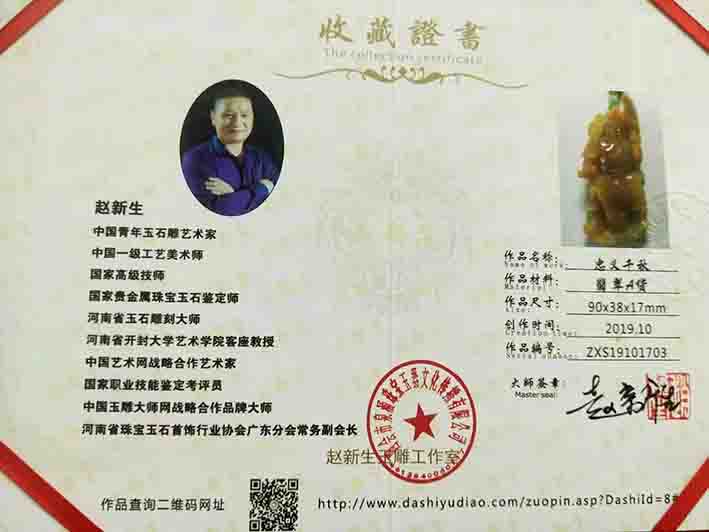 收藏證書
The collection certificate
赵新生
中国青年玉石雕艺术家
中国一级工艺美术师
国家高级技师
国家贵金属珠宝玉石鉴定师
河南省玉石雕刻大师
河南省开封大学艺术学院客座教授
中国艺术网战略合作艺术家
国家职业技能鉴定考评员
中国玉雕大师网战略合作品牌大师
河南省珠宝玉石首饰行业协会广东分会常务副会长
作品名称: 忠义千秋
Name of work:
作品材料: 翡翠A货
Material:
作品尺寸: 90x38x17mm
Size:
创作时间: 2019.10
Creation time:
作品编号: ZXS19101703
Serial number:
大師簽章:
Master seal:
赵新生玉雕工作室
作品查询二维码网址
http://www.dashiyudiao.com/zuopin.asp?DashiId=8#